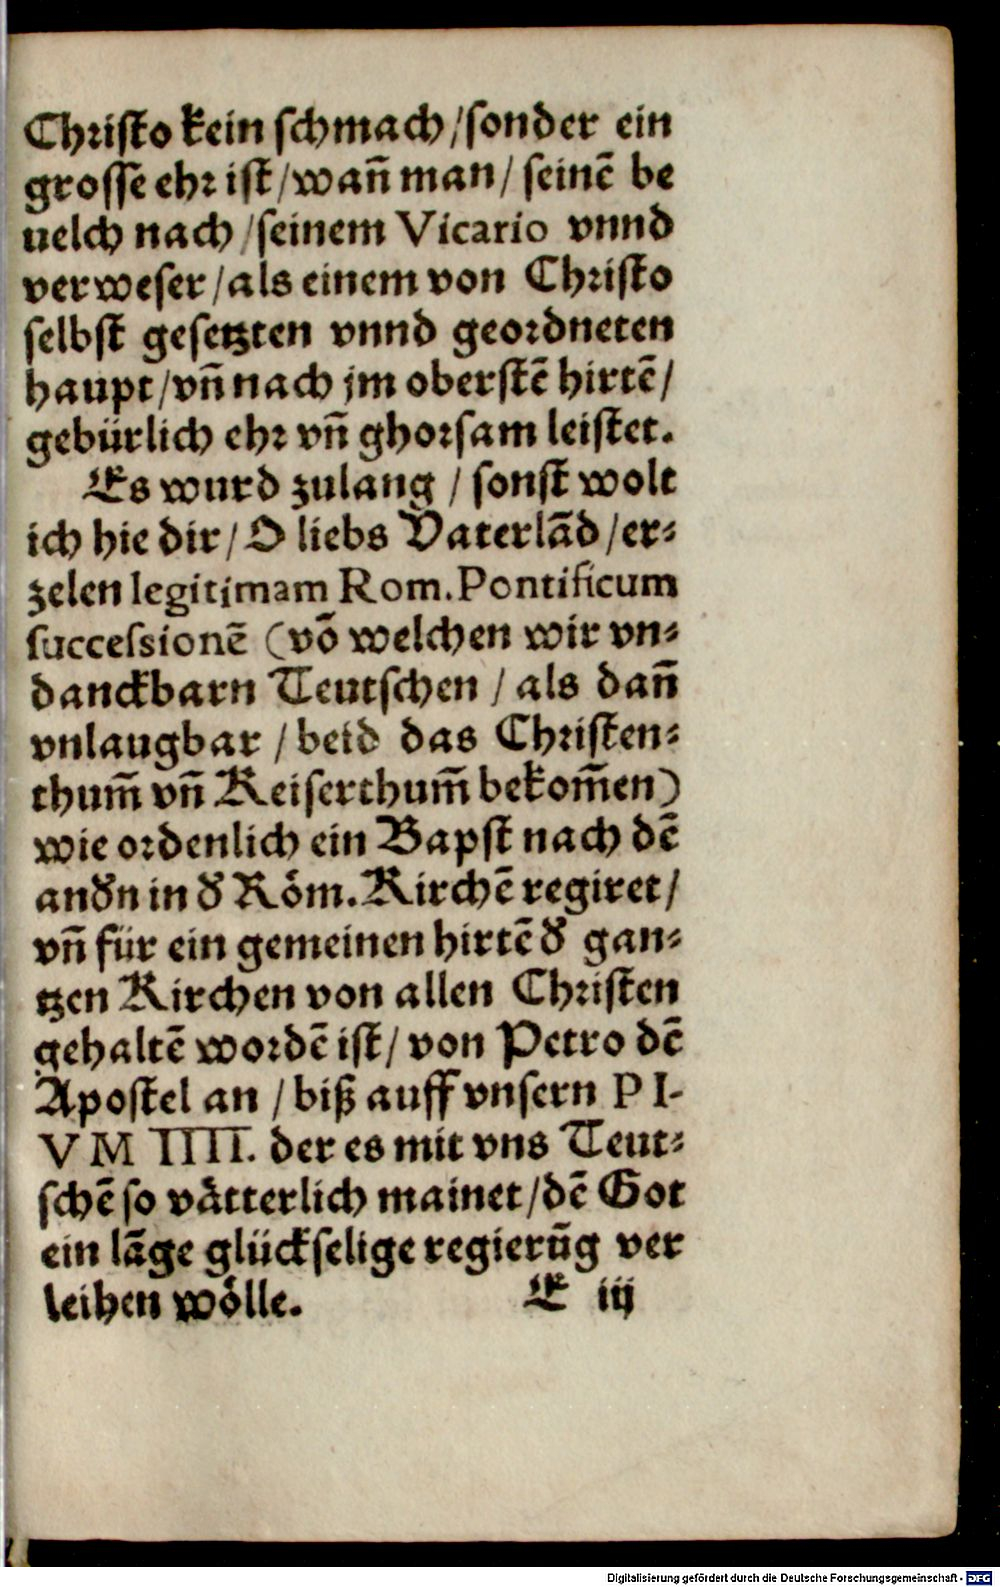 Christo kein schmach/sonder ein
grosse ehr ist/wañ man/ seinē be
uelch nach/seinem Vicario vnnd
verweser/als einem von Christo
selbst gesetzten vnnd geordneten
haupt/vñ nach jm oberstē hirtē/
gebürlich ehr vñ ghorsam leistet.
Es wurd zulang / sonst wolt
ich hie dir/ O liebs Vaterlād/er⸗
zelen legitimam Rom. Pontificum
successionē (vō welchen wir vn⸗
danckbarn Teutschen / als dañ
vnlaugbar / beid das Christen⸗
thum̃ vñ Keiserthum̃ bekom̃en)
wie ordenlich ein Bapst nach dē
andn in d Röm. Kirchē regiret/
vñ für ein gemeinen hirtē d gan⸗
tzen Kirchen von allen Christen
gehaltē wordē ist/ von Petro dē
Apostel an / biß auff vnsern PI-
VM IIII. der es mit vns Teut⸗
schē so vätterlich mainet/dē Got
ein lāge glückselige regierūg ver
leihen wölle. E iij
Digitalisierung gefördert durch die Deutsche Forschungsgemeinschaft - DFG